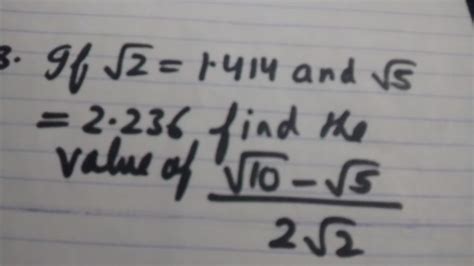 3. If √2 = 1.414 and √5
= 2.236 find the
value of √10 - √5
2√2